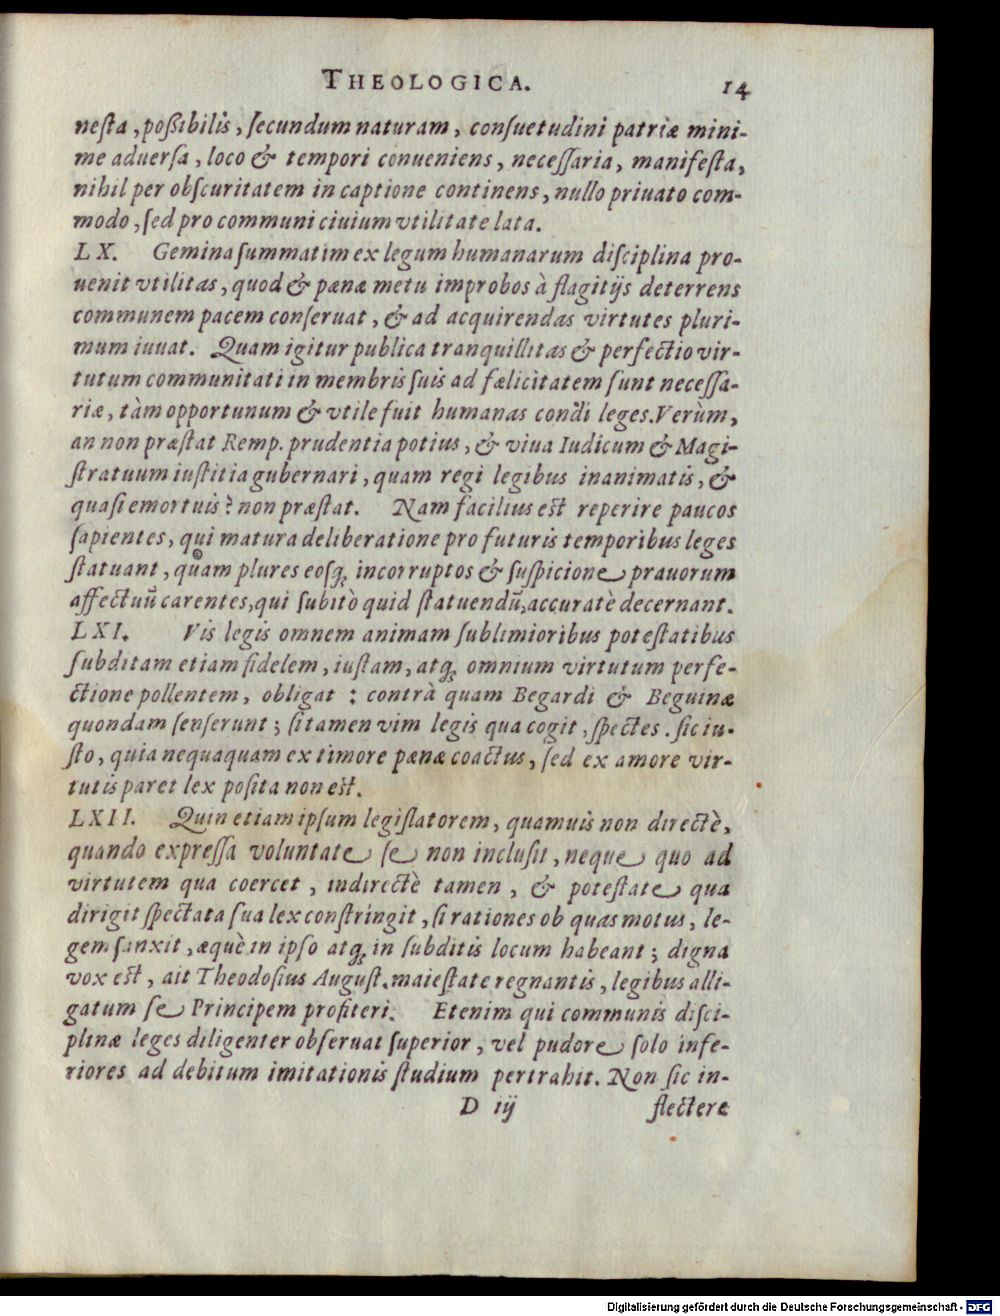 THEOLOGICA. 14
nesta, poßibilis, secundum naturam, consuetudini patriæ mini-
me aduersa, loco & tempori conueniens, necessaria, manifesta,
nihil per obscuritatem in captione continens, nullo priuato com-
modo, sed pro communi ciuium vtilitate lata.
LX. Gemina summatim ex legum humanarum disciplina pro-
uenit vtilitas, quod & pœnæ metu improbos à flagitijs deterrens
communem pacem conseruat, & ad acquirendas virtutes pluri-
mum iuuat. Quam igitur publica tranquillitas & perfectio vir-
tutum communitati in membris suis ad fælicitatem sunt necessa-
riæ, tàm opportunum & vtile fuit humanas condi leges. Verùm,
an non præstat Remp. prudentia potius, & viua Iudicum & Magi-
stratuum iustitia gubernari, quam regi legibus inanimatis, &
quasi emortuis? non præstat. Nam facilius est reperire paucos
sapientes, qui matura deliberatione pro futuris temporibus leges
statuant, quam plures eosq; incorruptos & suspicione prauorum
affectuũ carentes, qui subitò quid statuendũ, accuratè decernant.
LXI. Vis legis omnem animam sublimioribus potestatibus
subditam etiam fidelem, iustam, atq; omnium virtutum perfe-
ctione pollentem, obligat : contrà quam Begardi & Beguinæ
quondam senserunt; si tamen vim legis qua cogit, spectes. sic iu-
sto, quia nequaquam ex timore pœnæ coactus, sed ex amore vir-
tutis paret lex posita non est.
LXII. Quin etiam ipsum legislatorem, quamuis non directè,
quando expressa voluntate se non inclusit, neque quo ad
virtutem qua coercet, indirectè tamen, & potestate qua
dirigit spectata sua lex constringit, si rationes ob quas motus, le-
gem sanxit, æquè in ipso atq; in subditis locum habeant; digna
vox est, ait Theodosius August. maiestate regnantis, legibus alli-
gatum se Principem profiteri. Etenim qui communis disci-
plinæ leges diligenter obseruat superior, vel pudore solo infe-
riores ad debitum imitationis studium pertrahit. Non sic in-
D iij flectere
Digitalisierung gefördert durch die Deutsche Forschungsgemeinschaft - DFG